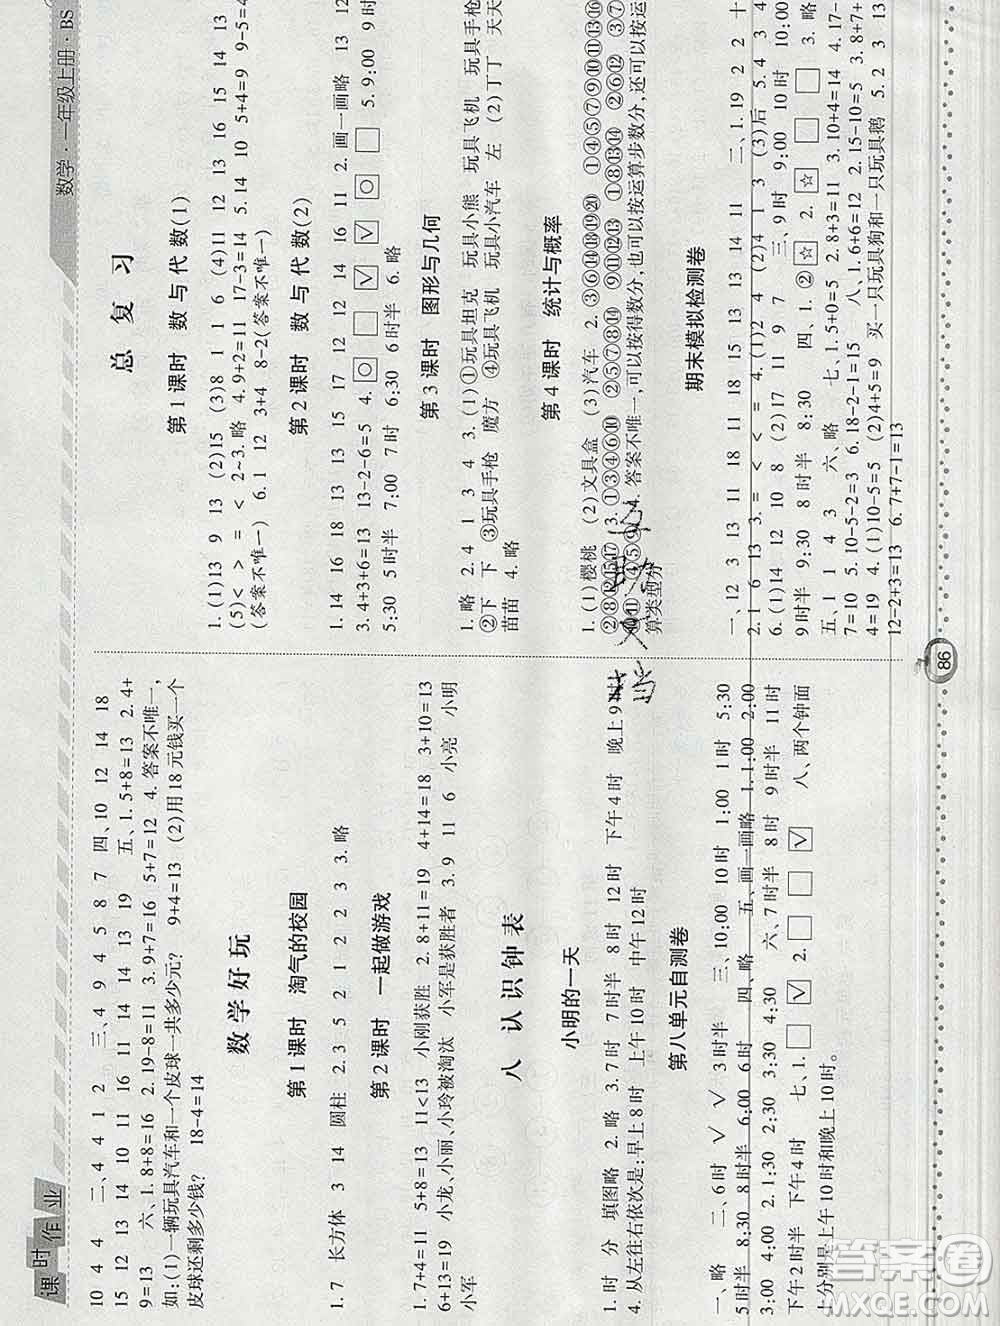 课时作业
10 4 4 二、4 4 1 2 三、4 9 4 5 8 7 四、10 12 14 18
15 12 13 14 10 11 16 11 14 13 19 五、1. 5+8=13 2. 4+
9=13 六、1. 8+8=16 2. 19-8=11 3. 9+7=16 5+7=12 4. 答案不唯一,
如:(1)一辆玩具汽车和一个皮球一共多少元? 9+4=13 (2)用18元钱买一个
皮球还剩多少钱? 18-4=14
数学好玩
第1课时 淘气的校园
1. 7 长方体 3 14 圆柱 2. 3 5 2 1 2 2 3 3. 略
第2课时 一起做游戏
1. 7+4=11 5+8=13 11<13 小刚获胜 2. 8+11=19 4+14=18 3+10=13
6+13=19 小龙、小丽、小玲被淘汰 小军是获胜者 3. 9 11 6 小亮 小明
小军
八 认识钟表
小明的一天
1. 时 分 填图略 2. 略 3. 7时 7时半 8时 12时 下午4时 晚上9时
4. 从左往右依次是:早上8时 上午10时 中午12时
第八单元自测卷
一、略 二、6时 √ √ 3时半 三、10:00 10时 1:00 1时 5:30
5时半 8:30 8时半 6:00 6时 四、略 五、画一画略 1. 1:00 2:00
3:00 4:00 2. 1:30 2:30 3:30 4:30 六、7时半 8时 9时半 11时
下午2时半 下午4时 七、1. □ √ 2. □ □ √ 八、两个钟面
十分别是上午10时和晚上10时。
数学·一年级上册·BS
总复习
第1课时 数与代数(1)
1. (1)13 9 13 (2)15 (3)8 1 1 6 (4)11 12 13 16 15 14 13
(5)< > = < 2~3. 略 4. 9+2=11 17-3=14 5. 14 10 5+4=9 9-5=4
(答案不唯一) 6. 1 12 3+4 8-2(答案不唯一)
第2课时 数与代数(2)
1. 14 16 18 13 13 15 17 12 12 14 16 11 2. 画一画略 13 12
3. 4+3+6=13 13-2-6=5 4. ○ □ √ √ ○ □ 5. 9:00 9时
5:30 5时半 7:00 7时 6:30 6时半 6. 略
第3课时 图形与几何
1. 略 2. 4 1 3 4 3. (1)①玩具坦克 玩具小熊 玩具飞机 玩具手枪
②下 下 ③玩具手枪 魔方 ④玩具飞机 玩具小汽车 左 (2)丁丁 天天
苗苗 4. 略
第4课时 统计与概率
1. (1)樱桃 (2)文具盒 (3)汽车 2. ③⑥⑭⑱⑲⑳ ①④⑤⑦⑨⑩⑪⑬
算类型分
期末模拟检测卷
一、12 3 13 11 18 11 18 15 13 13 14 11 二、1. 19 2 2 十
2. 1 6 13 3. = < < = 4. (1)2 4 (2)4 1 3 (3)后 5. 4 3 4
6. (1)14 12 10 8 (2)17 11 9 7 三、9时 9:00 10时 10:00
9时半 9:30 8时半 8:30 四、1. ② ☆ 2. ☆ □ □ 3. 略
五、1 1 4 3 六、略 七、1. 5+0=5 2. 8+3=11 3. 10+4=14 4. 17-
7=10 5. 10-5-2=3 6. 18-2-1=15 八、1. 6+6=12 2. 15-10=5 3. 8+7+
4=19 4. (1)10-5=5 (2)4+5=9 买一只玩具狗和一只玩具鹅 5. 2 3 13
12-2+3=13 6. 7+7-1=13
86
答案圈
MXQE.COM